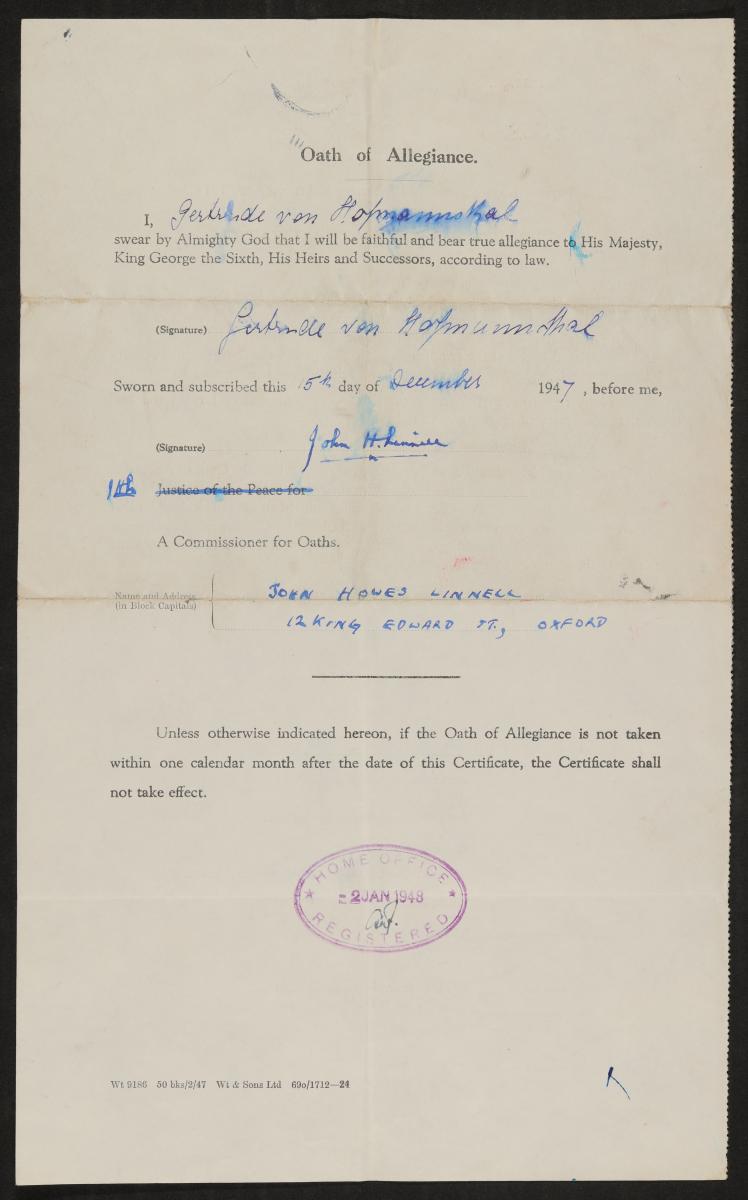 Oath of Allegiance.
I, Gertrude von Hofmannsthal
swear by Almighty God that I will be faithful and bear true allegiance to His Majesty,
King George the Sixth, His Heirs and Successors, according to law.
(Signature) Gertrude von Hofmannsthal
Sworn and subscribed this 15th day of December 1947, before me,
(Signature) John H. Linnell
Justice of the Peace for
A Commissioner for Oaths.
Name and Address JOHN HOWES LINNELL
(in Block Capitals) 12 KING EDWARD ST., OXFORD
Unless otherwise indicated hereon, if the Oath of Allegiance is not taken
within one calendar month after the date of this Certificate, the Certificate shall
not take effect.
HOME OFFICE
2 JAN 1948
REGISTERED
Wt 9186 50 bks/2/47 Wt & Sons Ltd 690/1712—24